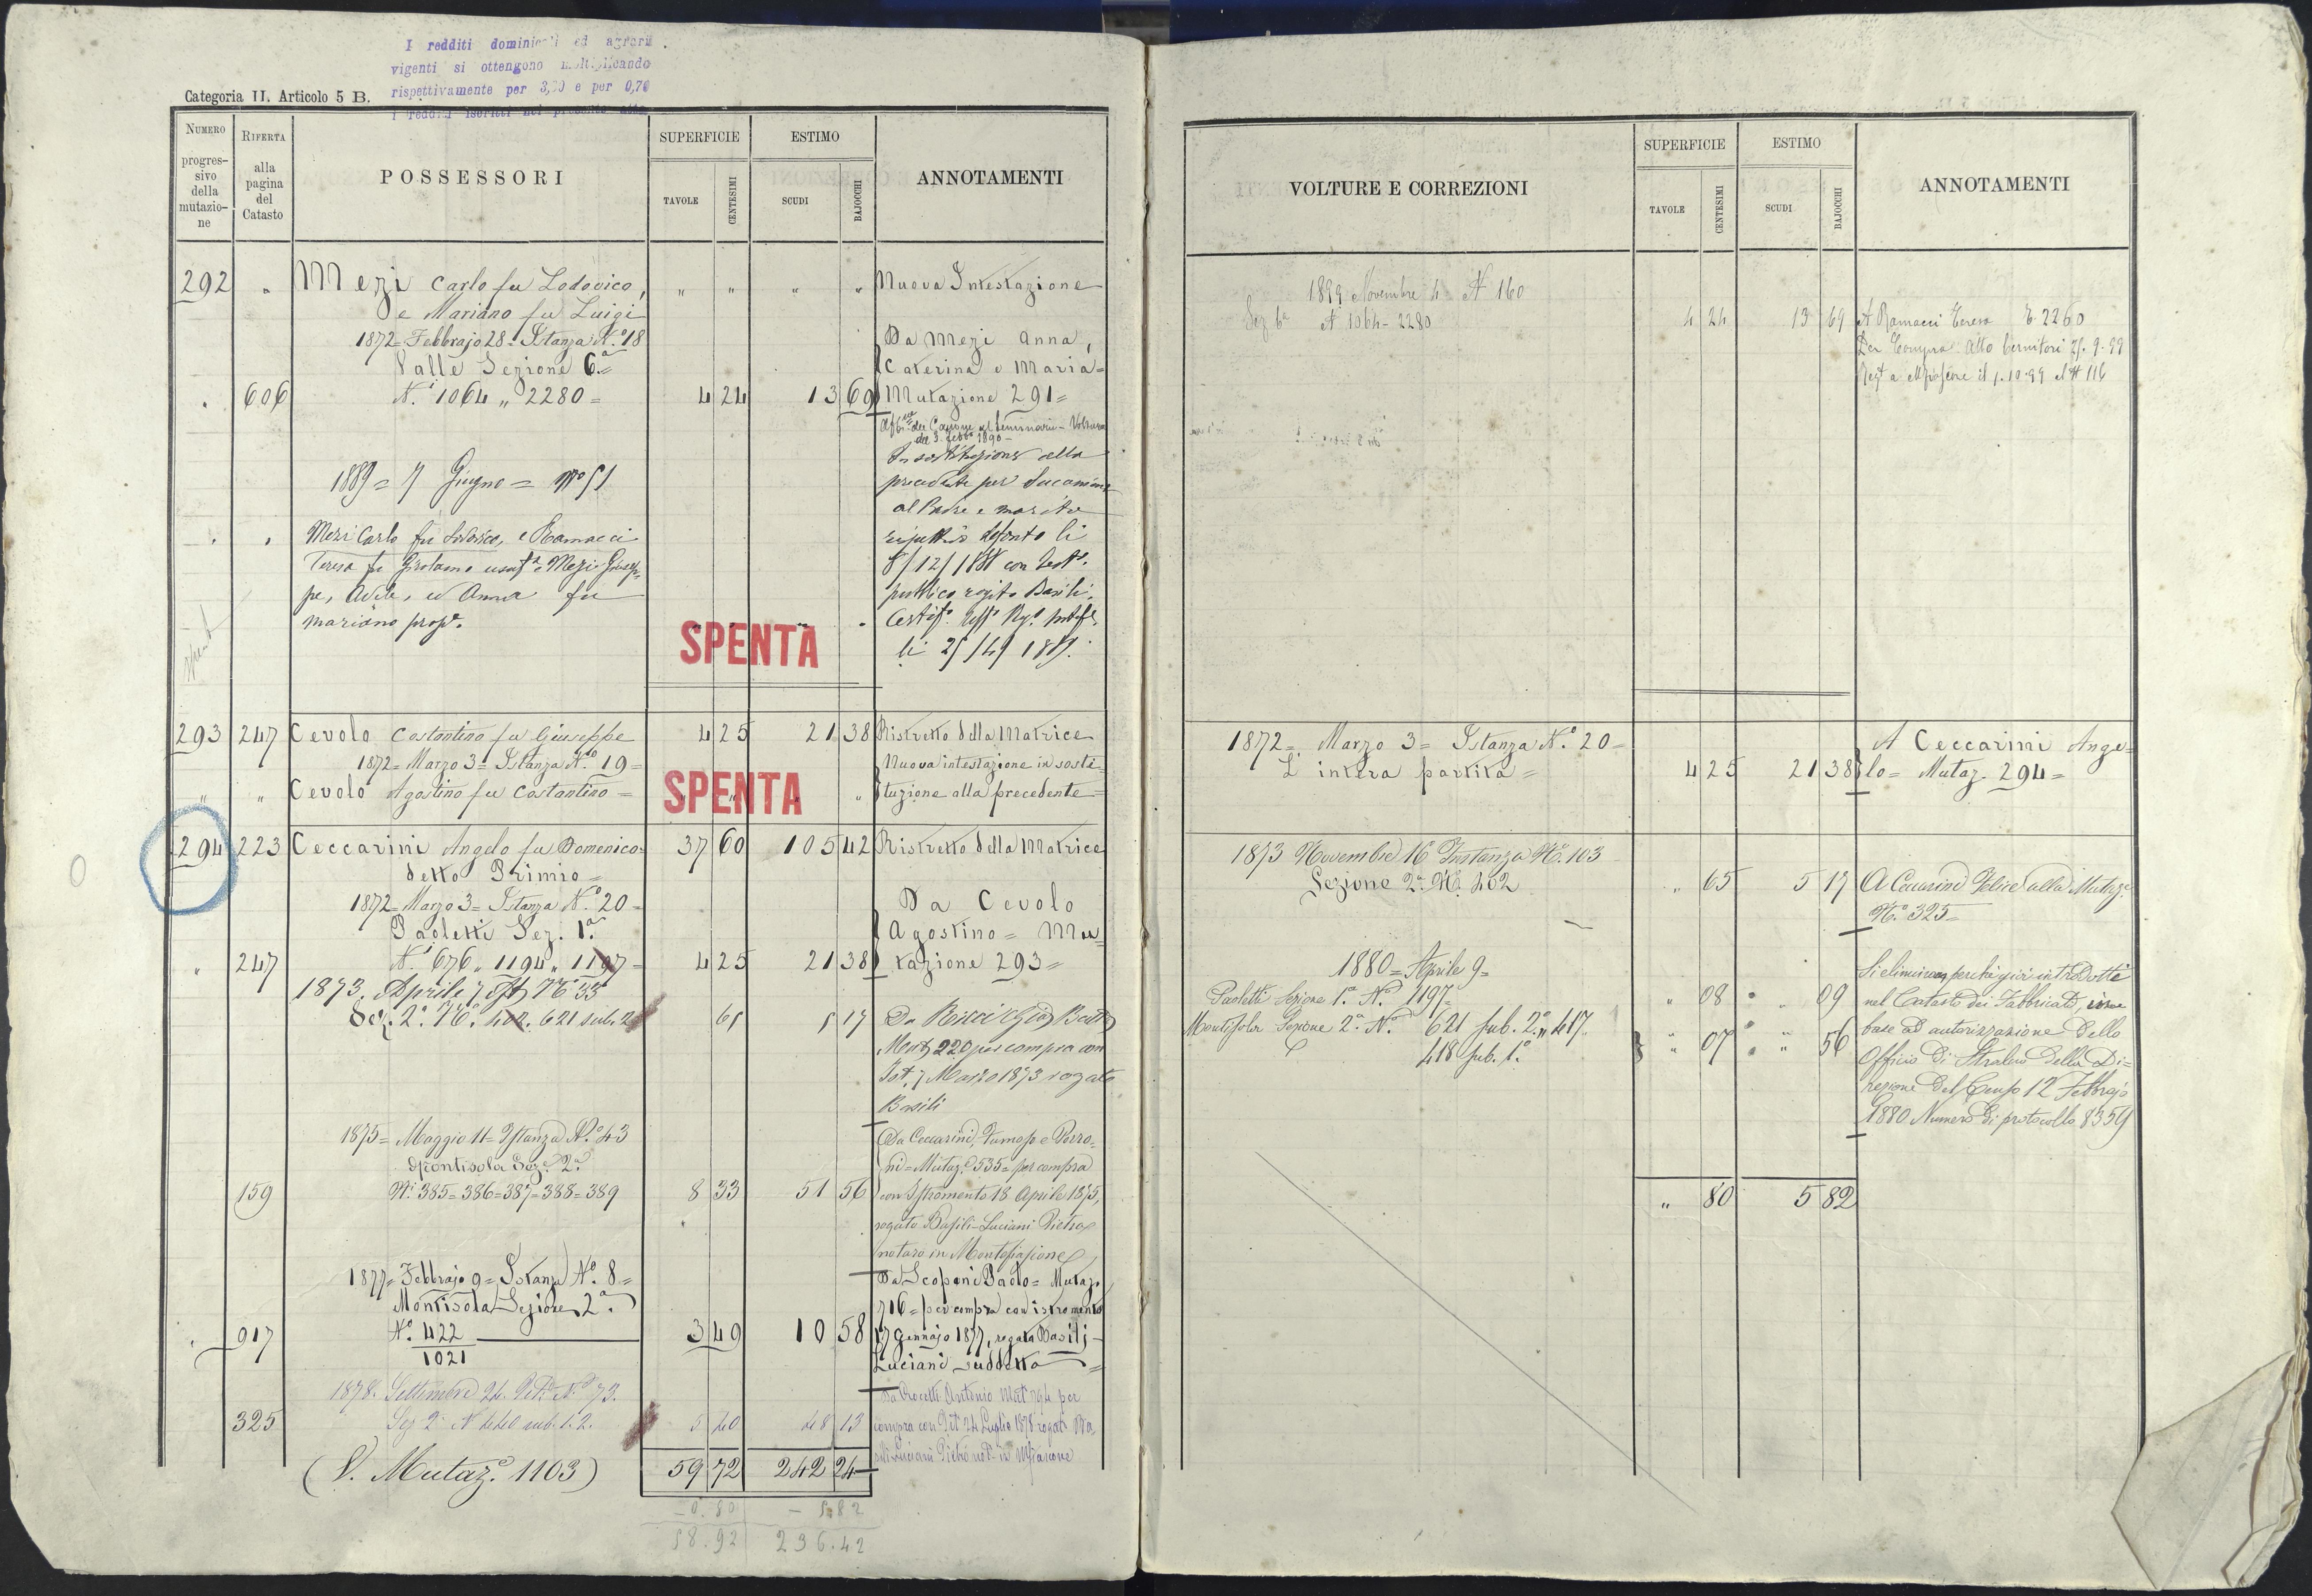 I redditi dominicali ed agrari
vigenti si ottengono moltiplicando
rispettivamente per 3,70 e per 0,70
i redditi iscritti nel presente atto.
Categoria II. Articolo 5 B.
NUMERO progres-sivo della mutazio-ne
RIFERTA alla pagina del Catasto
POSSESSORI
SUPERFICIE
TAVOLE CENTESIMI
ESTIMO
SCUDI BAJOCCHI
ANNOTAMENTI
292 " Mezi Carlo fu Lodovico, " " " " Nuova Intestazione
e Mariano fu Luigi
1872 = Febbrajo 28 = Istanza N.º 18 Da Mezi Anna,
Valle Sezione 6.ª = Caterina e Maria =
606 N.i 1064 „ 2280 = 4 24 13 69 Mutazione 291 =
del Canone al Seminario - Voltura
del 3. 1890 -
1889 = 7 Giugno = Nº 51
In sostituzione alla
precedente per successione
al Padre e marito
Mezi Carlo fu Lodovico, e Ramacci
Teresa fu Girolamo usuf.ª e Mezi Giusep-
pe, Adele, ed Anna fu
Mariano prop.
defonto li
8/12/1888 con test.
pubblico rogito Basili.
SPENTA
293 247 Cevolo Costantino fu Giuseppe 4 25 21 38 Ristretto della Matrice
1872 = Marzo 3 = Istanza N.º 19 = Nuova intestazione in sosti=
" " Cevolo Agostino fu Costantino = " tuzione alla precedente =
SPENTA
294 223 Ceccarini Angelo fu Domenico = 37 60 105 42 Ristretto della Matrice
detto Primio =
1872 = Marzo 3 = Istanza N.º 20 = Da Cevolo
Paoletti Sez. 1.ª Agostino = Mu=
" 247 N.i 676 „ 1194 „ 1197 = 4 25 21 38 tazione 293 =
1873. Aprile 7 Ist. Nº 33
Sez. 2.ª Nº. 402. 621 sub. 2 65 5 17 Da Ricci Gio Batta
Mut. 220 per compra con
Ist. 7 Marzo 1873 rogato
Basili
1875 = Maggio 11 = Istanza N.º 43 Da Ceccarini, Fumoso e Porro=
Montisola Sez.e 2.ª ni = Mutaz.e 535 = per compra
159 N.i 385 = 386 = 387 = 388 = 389 8 33 51 56 con Istromento 18 Aprile 1875,
rogato Basili - Luciani Pietro
notaro in Montefiascone
1877 = Febbrajo 9 = Istanza N.º 8 = Da Scoponi Paolo = Mutaz.
Montisola Sezione 2.ª 716 = per compra con istromento
" 917 N.º 422 3 49 10 58 17 Gennajo 1877, rogato Basilj -
1021 Luciani suddetto =
1878. Settembre 24. N.º 73. Da Crocetti Antonio Mut. 794 per
325 Sez 2ª N 440 sub. 1. 2. 5 40 48 13 compra con Ist 24 Luglio 1878 rogato Ba=
sili Luciani Pietro not. in Mfiascone
(V. Mutaz.e 1103) 59 72 242 24
- 0.80 - 5.82
58.92 236.42
VOLTURE E CORREZIONI
SUPERFICIE
TAVOLE CENTESIMI
ESTIMO
SCUDI BAJOCCHI
ANNOTAMENTI
1899 Novembre 4 N 160
Sez 6ª N 1064 - 2280 4 24 13 69 A Ramacci Teresa 2260
Per Compra Atto
1872 = Marzo 3 = Istanza N.º 20 = A Ceccarini Ange=
L' intera partita = 4 25 21 38 lo = Mutaz. 294 =
1873 Novembre 16 Instanza Nº. 103
Sezione 2.ª Nº. 402 " 65 5 17 A Ceccarini Felice alla Mutaz.e
Nº. 325 =
1880 = Aprile 9 = Si eliminano perchè già introdotti
Paoletti Sezione 1.ª N.º 1197 = " 08 " " 09 nel Catasto dei Fabbricati, in
Montisola Sezione 2.ª N.º 621 sub. 2.º „ 417 base ad autorizzazione dello
418 sub. 1.º " 07 " " 56 Officio di Stralcio della Di=
rezione del Censo 12 Febbrajo
1880 Numero di protocollo 8359
" 80 5 82